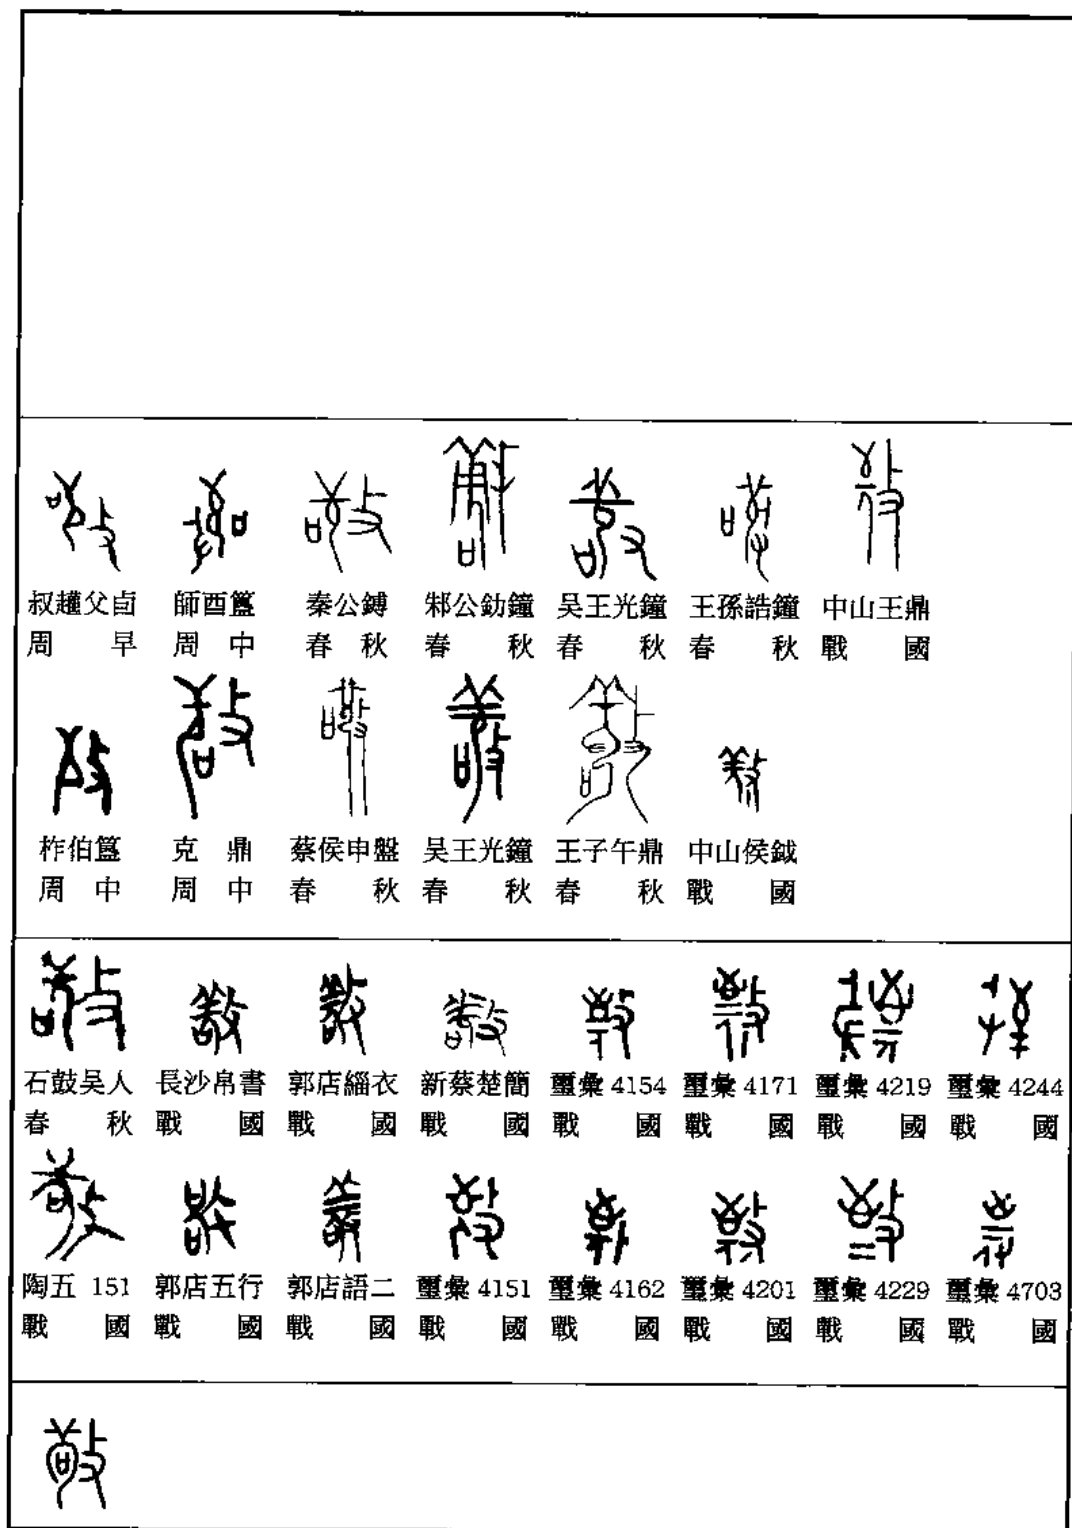 叔趯父卣 師酉簋 秦公鎛 邾公釛鐘 吴王光鐘 王孫誥鐘 中山王鼎
周早 周中 春秋 春秋 春秋 春秋 戰國
柞伯簋 克鼎 蔡侯申盤 吴王光鐘 王子午鼎 中山侯鉞
周中 周中 春秋 春秋 春秋 戰國
石鼓吴人 長沙帛書 郭店緇衣 新蔡楚簡 璽彙4154 璽彙4171 璽彙4219 璽彙4244
春秋 戰國 戰國 戰國 戰國 戰國 戰國 戰國
陶五151 郭店五行 郭店語二 璽彙4151 璽彙4162 璽彙4201 璽彙4229 璽彙4703
戰國 戰國 戰國 戰國 戰國 戰國 戰國 戰國
敬